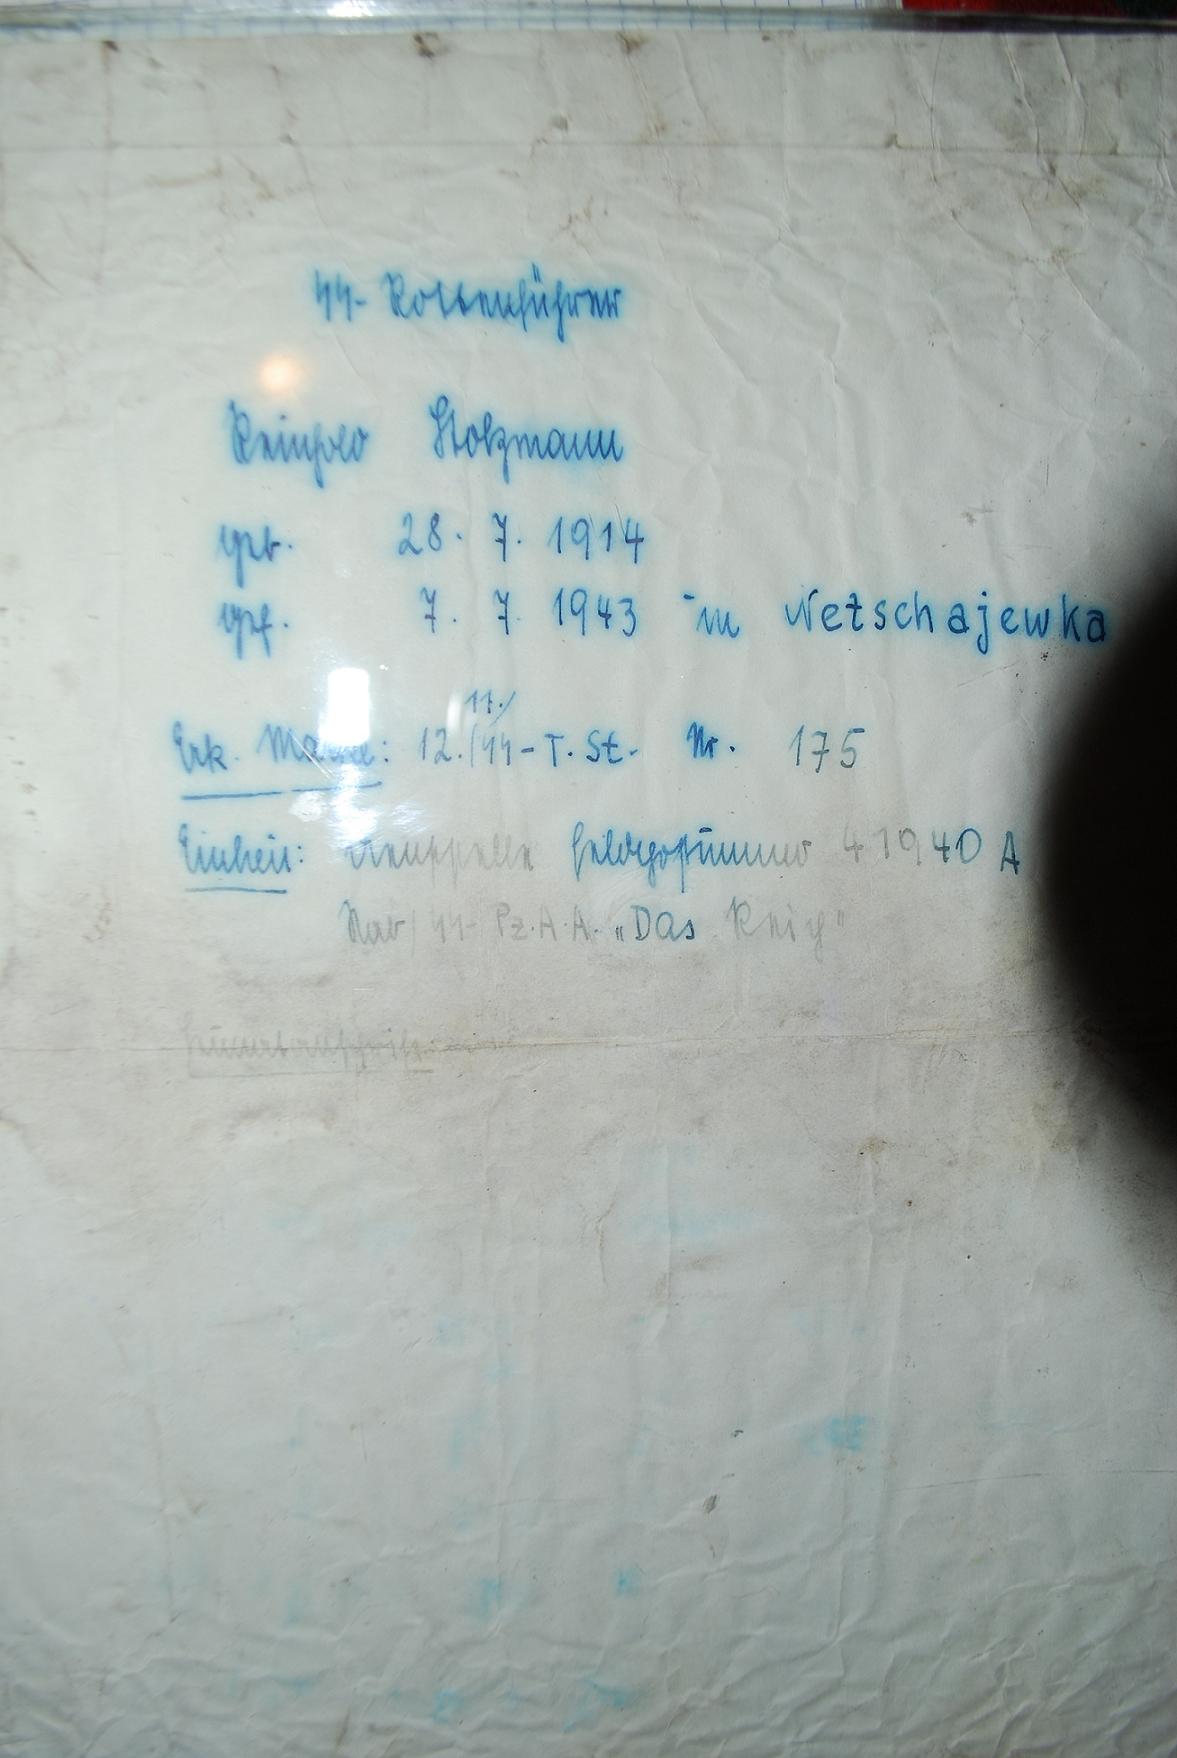 SS-Rottenführer
Reinhold Stolzmann
geb. 28. 7. 1914
gef. 7. 7. 1943 in Netschajewka
11./
Erk. Marke: 12./SS-T. St. Nr. 175
Einheit: Feldpostnummer 41940 A
SS-Pz.A.A. „Das Reich"
Heimatanschrift: